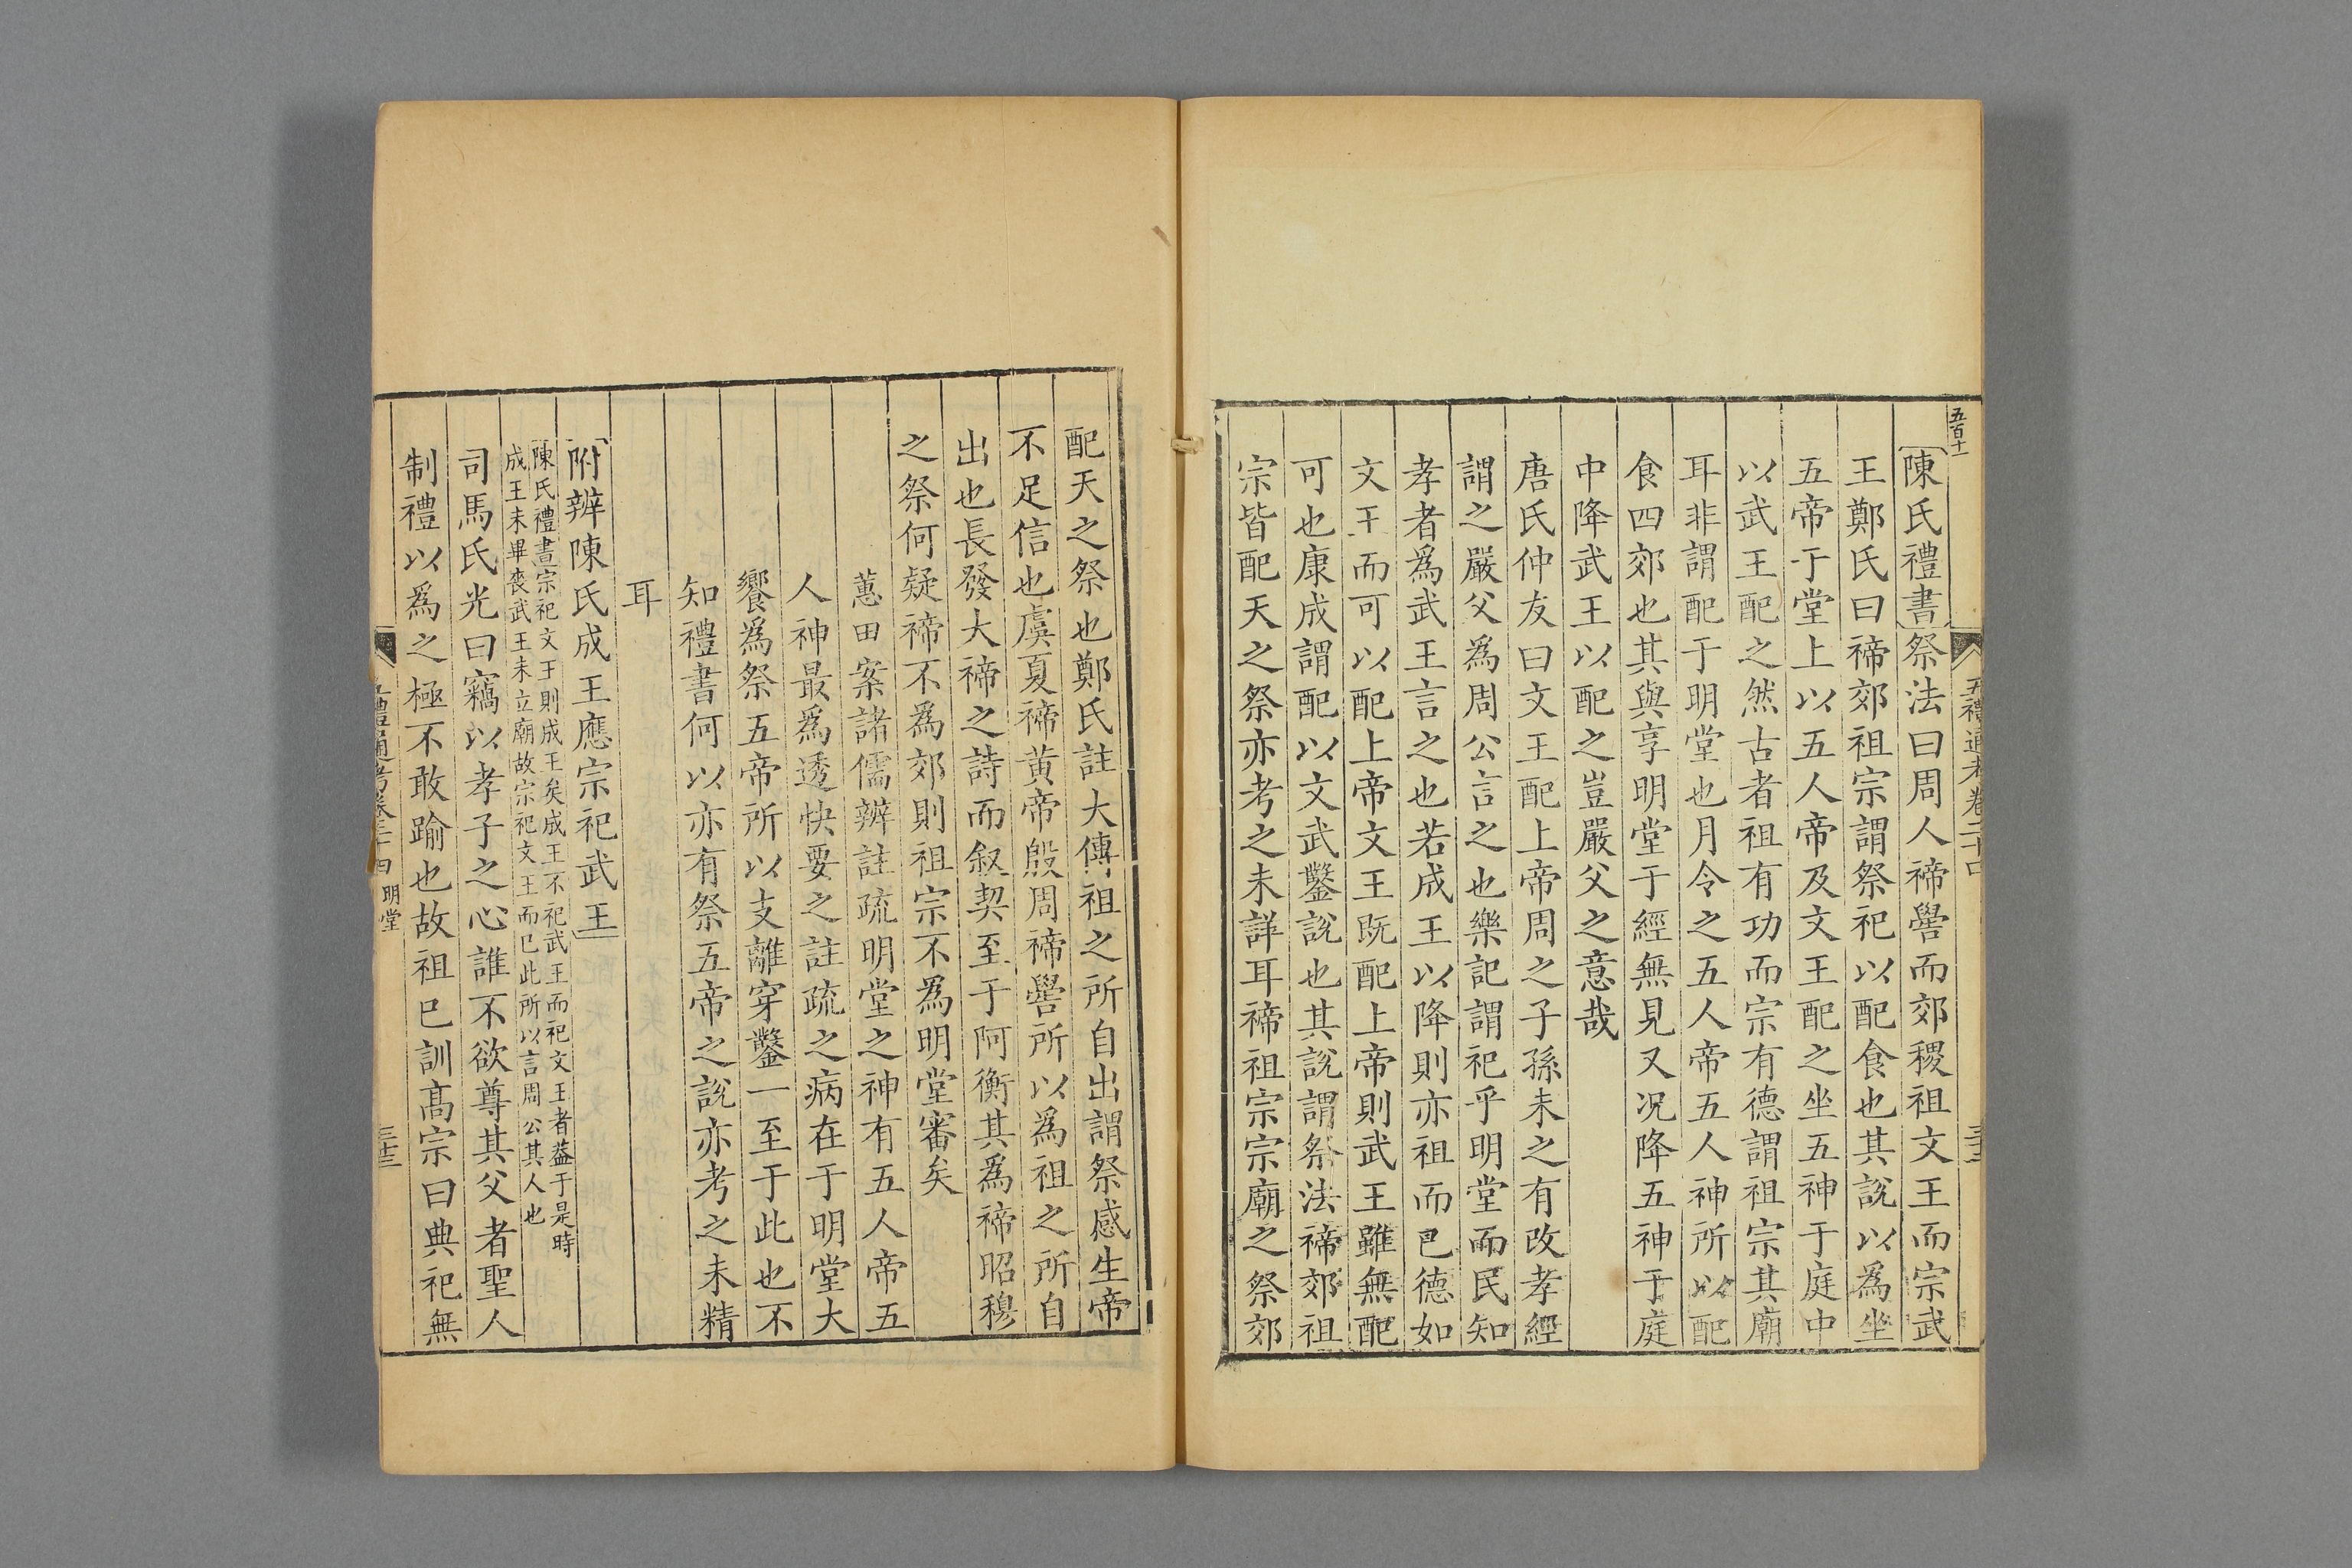 五百十一
五禮通考卷二十四
三十二
陳氏禮書祭法曰周人禘嚳而郊稷祖文王而宗武
王鄭氏曰禘郊祖宗謂祭祀以配食也其說以爲坐
五帝于堂上以五人帝及文王配之坐五神于庭中
以武王配之然古者祖有功而宗有德謂祖宗其廟
耳非謂配于明堂也月令之五人帝五人神所以配
食四郊也其與享明堂于經無見又况降五神于庭
中降武王以配之豈嚴父之意哉
唐氏仲友曰文王配上帝周之子孫未之有改孝經
謂之嚴父爲周公言之也樂記謂祀乎明堂而民知
孝者爲武王言之也若成王以降則亦祖而巳德如
文王而可以配上帝文王旣配上帝則武王雖無配
可也康成謂配以文武鑿說也其說謂祭法禘郊祖
宗皆配天之祭亦考之未詳耳禘祖宗宗廟之祭郊
配天之祭也鄭氏註大傳祖之所自出謂祭感生帝
不足信也虞夏禘黃帝殷周禘嚳所以爲祖之所自
出也長發大禘之詩而叙契至于阿衡其爲禘昭穆
之祭何疑禘不爲郊則祖宗不爲明堂審矣
蕙田案諸儒辨註疏明堂之神有五人帝五
人神最爲透快要之註疏之病在于明堂大
饗爲祭五帝所以支離穿鑿一至于此也不
知禮書何以亦有祭五帝之說亦考之未精
耳
附辨陳氏成王應宗祀武王
陳氏禮書宗祀文王則成王矣成王不祀武王而祀文王者葢于是時
成王未畢喪武王未立廟故宗祀文王而巳此所以言周公其人也
司馬氏光曰竊以孝子之心誰不欲尊其父者聖人
制禮以爲之極不敢踰也故祖巳訓高宗曰典祀無
五禮通考卷二十四 明堂
三十三